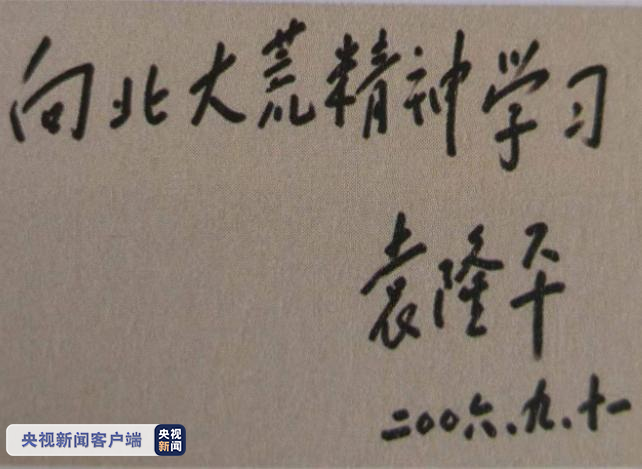 向北大荒精神学习
袁隆平
二00六、九、十一
央视新闻客户端 央视新闻